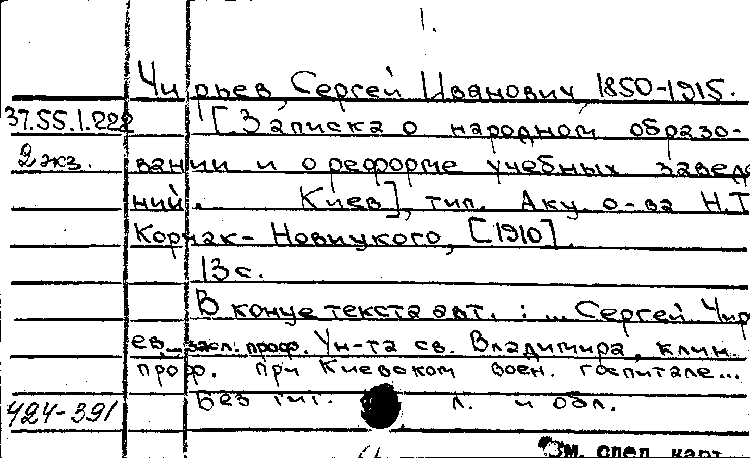 1.
Чирьев, Сергей Иванович, 1850-1915.
37.55.1.222 [Записка о народном образо-
2 экз. вании и о реформе учебных заведе
ний. Киев], тип. Акц. о-ва Н.Т
Корчак-Новицкого, [1910].
13 с.
В конце текста авт.: ... Сергей Чир
ев... засл. проф. Ун-та св. Владимира, клин.
проф. при Киевском воен. госпитале...
Без тит. л. и обл.
424-391
См. след. карт.